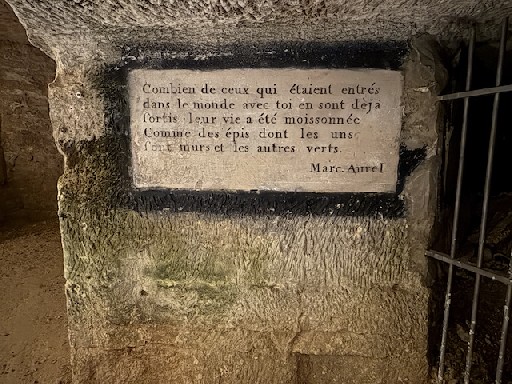 Combien de ceux qui étaient entrés
dans le monde avec toi en sont déja
sortis leur vie a été moissonnée
Comme des épis dont les uns
sont murs et les autres verts.
Marc-Aurel